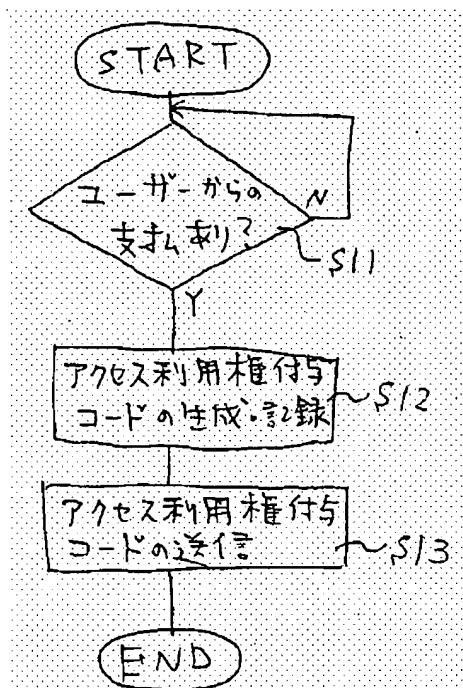 START
ユーザーからの
N
支払あり?
S11
Y
アクセス利用権付与
コードの生成・記録
S12
アクセス利用権付与
コードの送信
S13
END